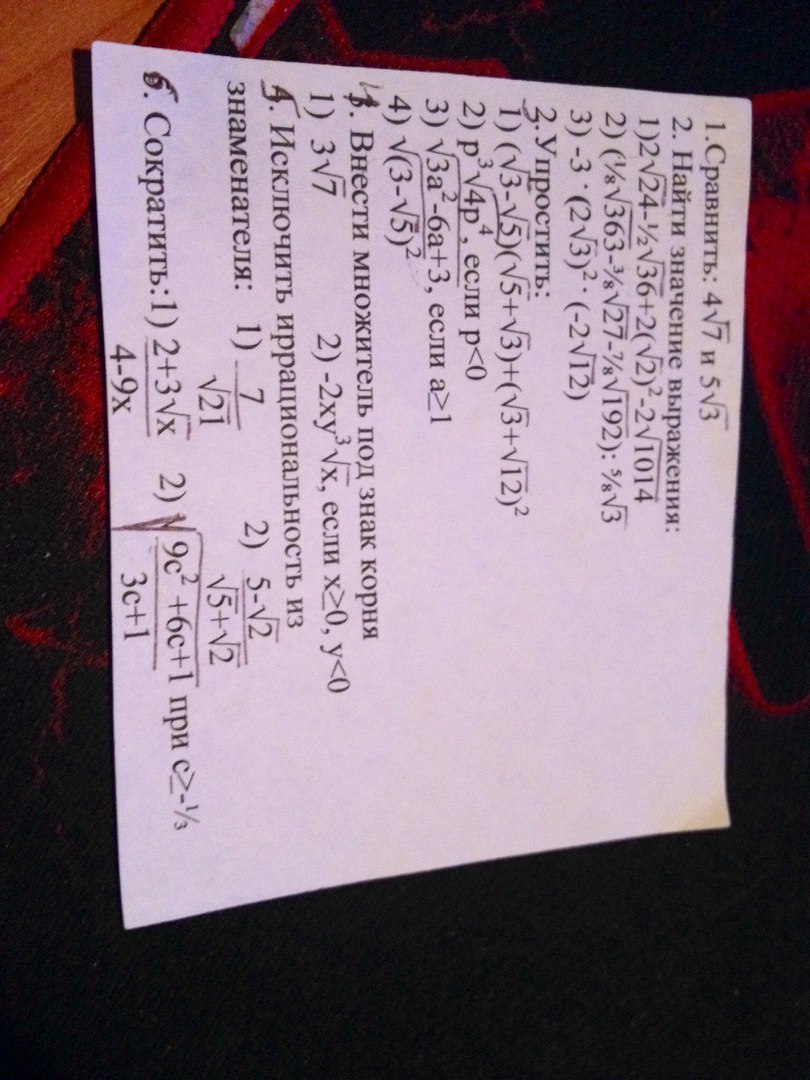 1.Сравнить: 4√7 и 5√3
2. Найти значение выражения:
1)2√24-½√36+2(√2)²-2√1014
2) (⅛√363-⅜√27-⅞√192): ⅝√3
3) -3 · (2√3)² · (-2√12)
3.Упростить:
1) (√3-√5)(√5+√3)+(√3+√12)²
2) p³√4p⁴, если p<0
3) √3a²-6a+3, если a≥1
4) √(3-√5)²
4. Внести множитель под знак корня
1) 3√7 2) -2xy³√x, если x≥0, y<0
5. Исключить иррациональность из
знаменателя: 1) 7 2) 5-√2
√21 √5+√2
6. Сократить:1) 2+3√x 2) √9c² +6c+1 при c≥-⅓
4-9x 3c+1